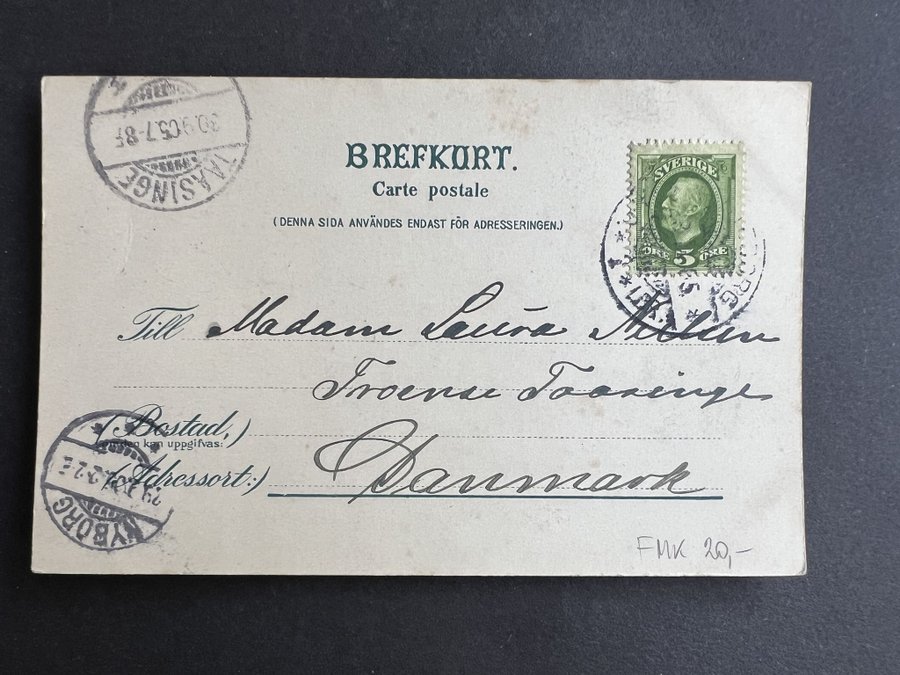 30.9.05.7-8F
TAASINGE
BREFKORT.
Carte postale
(DENNA SIDA ANVÄNDES ENDAST FÖR ADRESSERINGEN.)
SVERIGE
ÖRE 5 ÖRE
BORG
Till Madam Laura Nielsen
Troense Taasinge
(Bostad,)
kan uppgifvas:
(Adressort:) Danmark
NYBORG
FMK 20,-